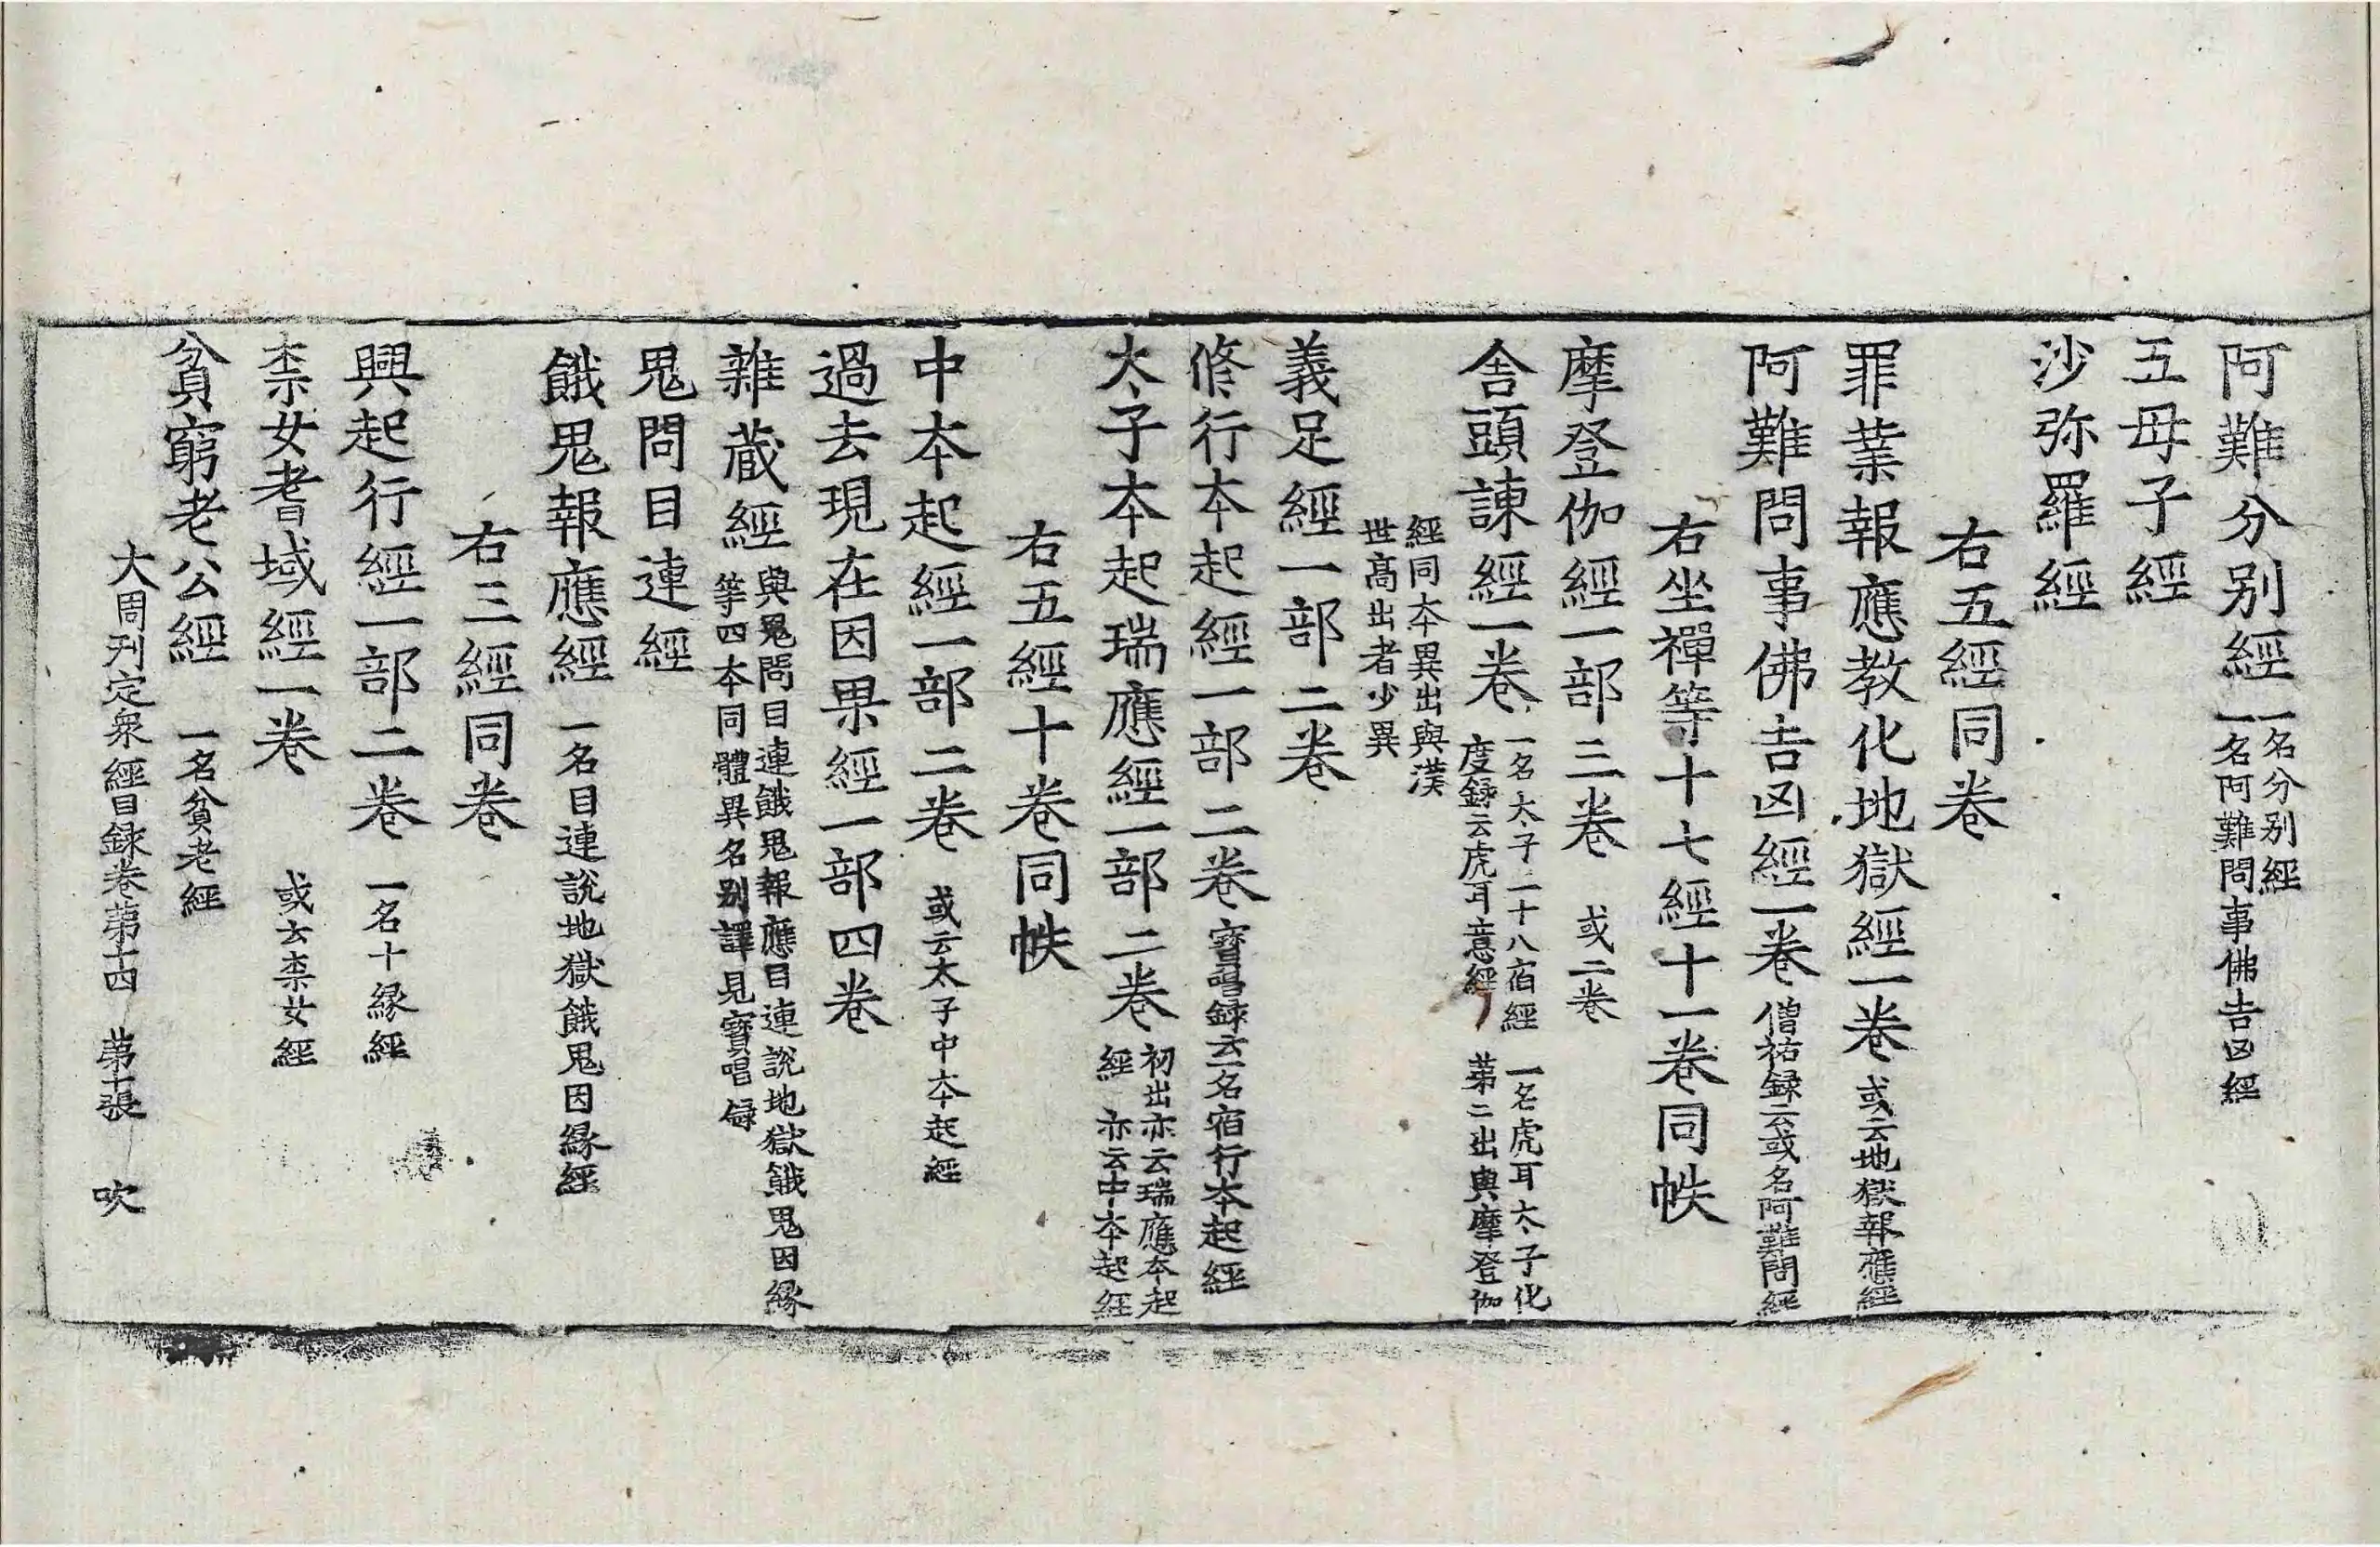 阿難分别經一名分别經一名阿難問事佛吉凶經
五母子經
沙弥羅經
右五經同卷
罪業報應教化地獄經一卷或云地獄報應經
阿難問事佛吉凶經一卷僧祐録云或名阿難問經
右坐禪等十七經十一卷同帙
摩登伽經一部三卷或二卷
舎頭諫經一卷一名太子二十八宿經 一名虎耳太子化度錄云虎耳意經 第二出與摩登伽
經同本異出與漢世髙出者少異
義足經一部二卷
修行本起經一部二卷寶唱錄云一名宿行本起經
太子本起瑞應經一部二卷初出亦云瑞應本起經 亦云中本起經
右五經十卷同帙
中本起經一部二卷或云太子中本起經
過去現在因果經一部四卷
雜蔵經與鬼問目連餓鬼報應目連說地獄餓鬼因縁等四本同體異名别譯見寶唱録
鬼問目連經
餓鬼報應經一名目連說地獄餓鬼因縁經
右三經同卷
興起行經一部二卷一名十縁經
柰女耆域經一卷或云柰女經
貧窮老公經一名貧老經
大周刊定衆經目録卷第十四 第十張 吹